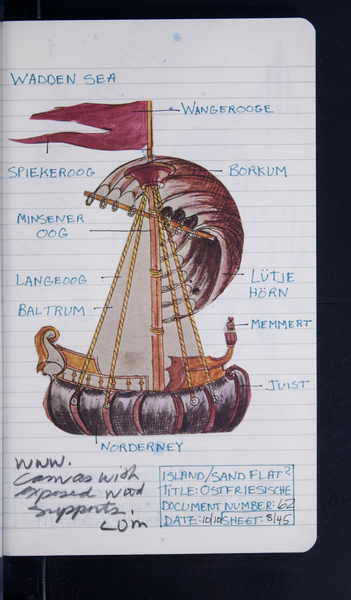 WADDEN SEA
WANGEROOGE
SPIEKEROOG
BORKUM
MINSENER
OOG
LANGEOOG
LÜTJE
HÖRN
BALTRUM
MEMMERT
JUIST
NORDERNEY
WWW.
Canvas with
exposed wood
supports.
COM
ISLAND/SAND FLAT?
TITLE: OSTFRIESISCHE
DOCUMENT NUMBER: 62
DATE: 10/10 SHEET: 8/45